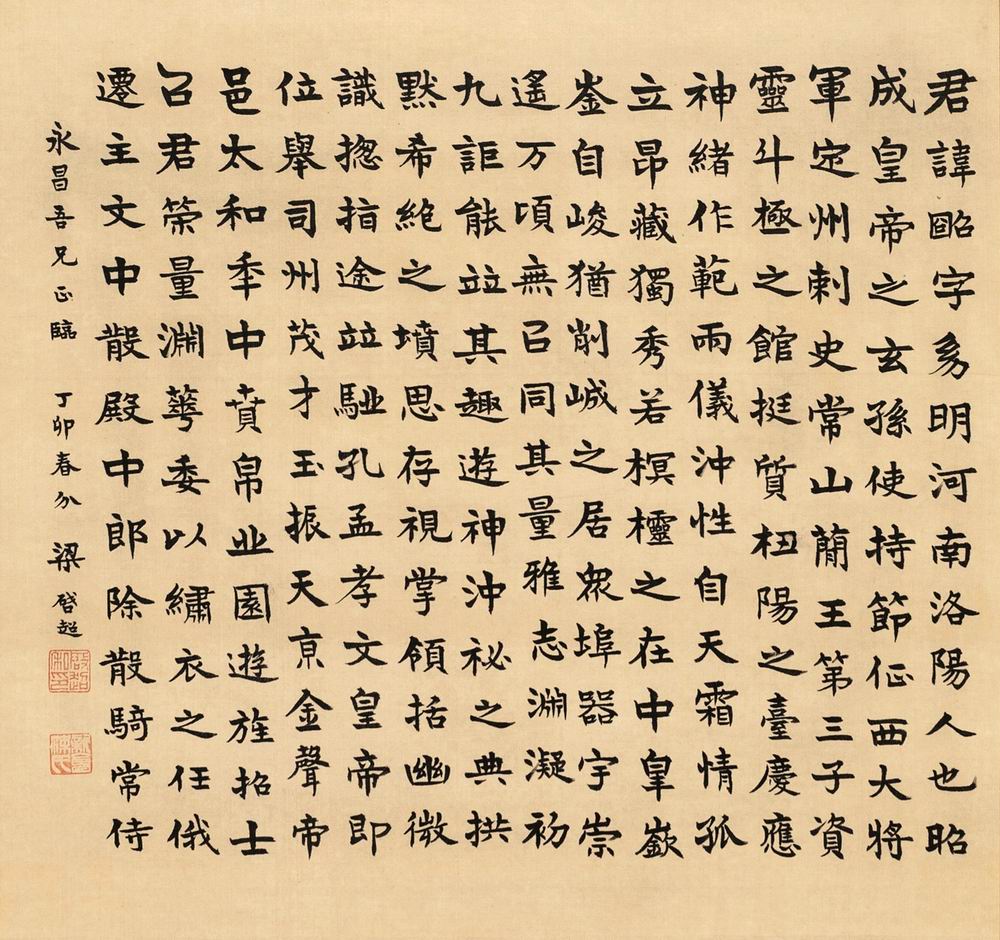 君諱昭字幼明河南洛陽人也昭
成皇帝之玄孫使持節征西大將
軍定州刺史常山蕳王第三子資
靈斗極之館挺質杻陽之臺慶應
神緒作範兩儀沖性自天霜情孤
立昂藏獨秀若榠櫺之在中皐嶽
崟自峻猶削峸之居眾埠器宇崇
遙万頃無㠯同其量雅志淵凝初
九詎能竝其趣遊神沖祕之典拱
默希絶之墳思存視掌領括幽微
識揔指途竝馳孔孟孝文皇帝即
位舉司州茂才玉振天京金聲帝
邑太和年中賁帛丘園遊旌招士
召君榮量淵蕚委以繡衣之任俄
遷主文中散殿中郎除散騎常侍
永昌吾兄正臨 丁卯春分 梁啓超